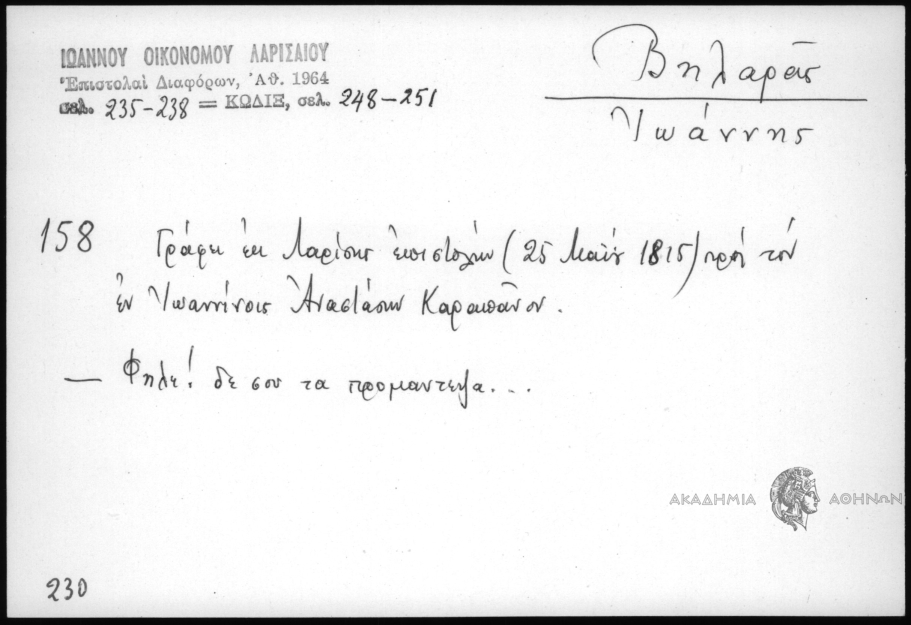 ΙΩΑΝΝΟΥ ΟΙΚΟΝΟΜΟΥ ΛΑΡΙΣΑΙΟΥ
Ἐπιστολαὶ Διαφόρων, Ἀθ. 1964
σελ. 235-238 = ΚΩΔΙΞ, σελ. 248-251
Βηλαρᾶς
Ἰωάννης
158 Γράφει ἐκ Λαρίσης ἐπιστολὴν (25 Μαΐου 1815) πρὸς τὸν
ἐν Ἰωαννίνοις Ἀναστάσιον Καραπᾶνον.
— Φηλε! δε σου τα προμαντεψα...
ΑΚΑΔΗΜΙΑ ΑΘΗΝΩΝ
230